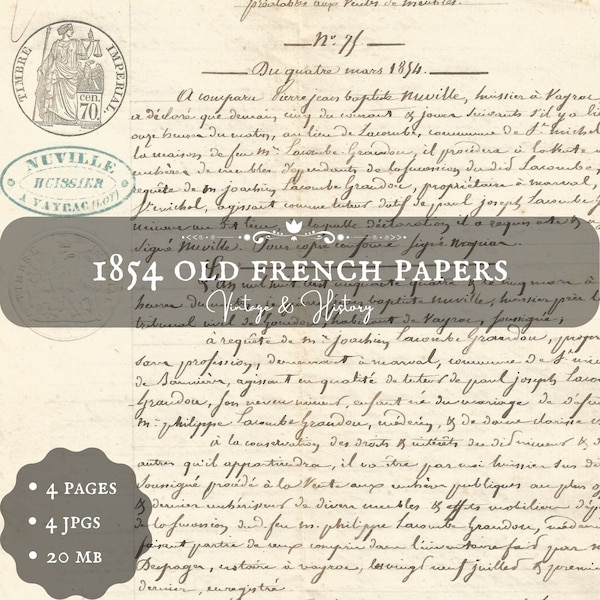 préalables aux Ventes de meubles.
N.° 75
Du quatre mars 1854.
TIMBRE IMPERIAL
cen. 70.
NUVILLE
HUISSIER
A VAYRAC (LOT)
A comparu Pierre Jean baptiste Nuville, huissier à Vayrac
a déclaré que demain cinq du courant & jours suivants s'il y a lieu
onze heures du matin, au lieu de Lacombe, commune de St michel
la maison de feu Mr Lacombe Grandou, il procédera à la Vente
enchères de meubles dépendants de la succession dudit Lacombe,
requête de m. Joachim Lacombe Grandou, propriétaire à marval,
St michel, agissant comme tuteur datif de paul joseph Lacombe
lieu, laquelle déclaration il a requis acte &
signé Nuville. Pour copie conforme signé
1854 OLD FRENCH PAPERS
Vintage & History
L'an mil huit cent cinquante quatre & le cinq mars à
heures du baptiste Nuville, huissier près le
tribunal civil de Gourdon, habitant de Vayrac, soussigné;
à requête de mr Joachim Lacombe Grandou,
sans profession, demeurant à marval, commune de St
de Bannières, agissant en qualité de tuteur de paul joseph
Grandou, son neveu mineur, enfant né du mariage de
mr philippe Lacombe Grandou, médecin, & de dame clarisse
à la conservation des droits & intérêts du dit mineur & de
autres qu'il appartiendra, il va être par moi huissier
soussigné procédé à la Vente aux enchères publiques au plus
& dernier enchérisseur de divers meubles & effets mobilier
de la succession dud feu m. philippe Lacombe Grandou,
faisant partie de ceux compris dans l'inventaire fait par
Despages, notaire à vayrac, les vingt neuf juillet & premier
dernier, enregistré
• 4 PAGES
• 4 JPGS
• 20 MB